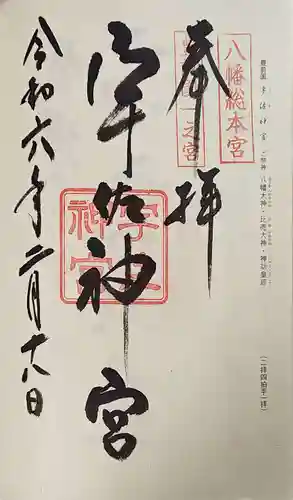 豊前国 宇佐神宮 ご祭神 八幡大神・比売大神・神功皇后
(二拝四拍手一拝)
八幡総本宮
一之宮
奉拝
宇佐神宮
宇佐神宮
令和六年二月十六日